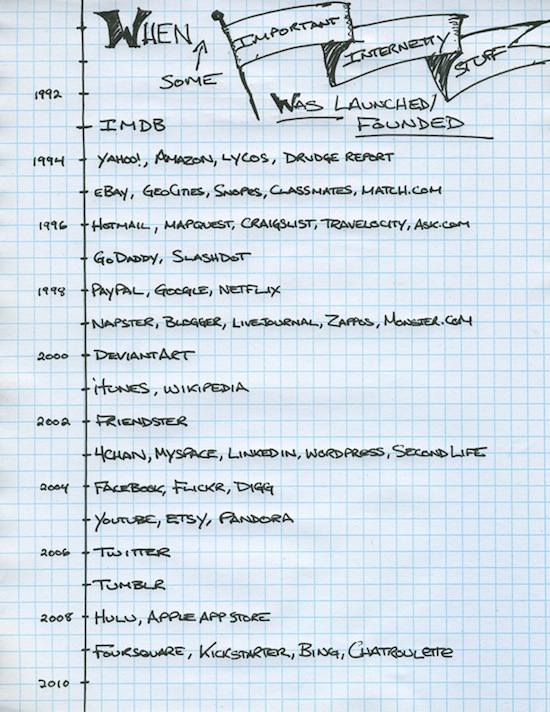 WHEN
SOME
IMPORTANT INTERNETTY STUFF
WAS LAUNCHED/
FOUNDED
1992
IMDB
1994 YAHOO!, AMAZON, LYCOS, DRUDGE REPORT
EBAY, GEOCITIES, SNOPES, CLASSMATES, MATCH.COM
1996 HOTMAIL, MAPQUEST, CRAIGSLIST, TRAVELOCITY, ASK.COM
GODADDY, SLASHDOT
1998 PAYPAL, GOOGLE, NETFLIX
NAPSTER, BLOGGER, LIVEJOURNAL, ZAPPOS, MONSTER.COM
2000 DEVIANTART
ITUNES, WIKIPEDIA
2002 FRIENDSTER
4CHAN, MYSPACE, LINKEDIN, WORDPRESS, SECOND LIFE
2004 FACEBOOK, FLICKR, DIGG
YOUTUBE, ETSY, PANDORA
2006 TWITTER
TUMBLR
2008 HULU, APPLE APP STORE
FOURSQUARE, KICKSTARTER, BING, CHATROULETTE
2010